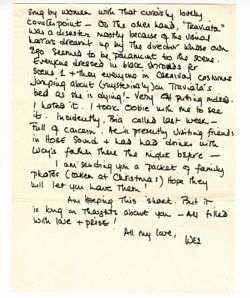 sung by women with that curiously lovely
counterpoint - On the other hand, "Traviata"
was a disaster mostly because of the visual
horrors dreamt up by the director whose own
ego seemed to be paramount to the scene.
Everyone dressed in black shrouds for
Scene 1 + then everyone in Carnival costumes
jumping about (mysteriously) on Traviata's
bed as she is dying! - Very off putting indeed.
I hated it. I took Obbie with me to see
it. Incidently, Bria called last week -
full of cancern. At is presently visiting friends
in HOBE Sound + had had drinks with
Lucy's father there the night before -
I am sending you a packet of family
photos (taken at Christmas) Hope they
will let you have them!
Am keeping this short. But it
is long on thoughts about you - All filled
with love + praise!
All my love,